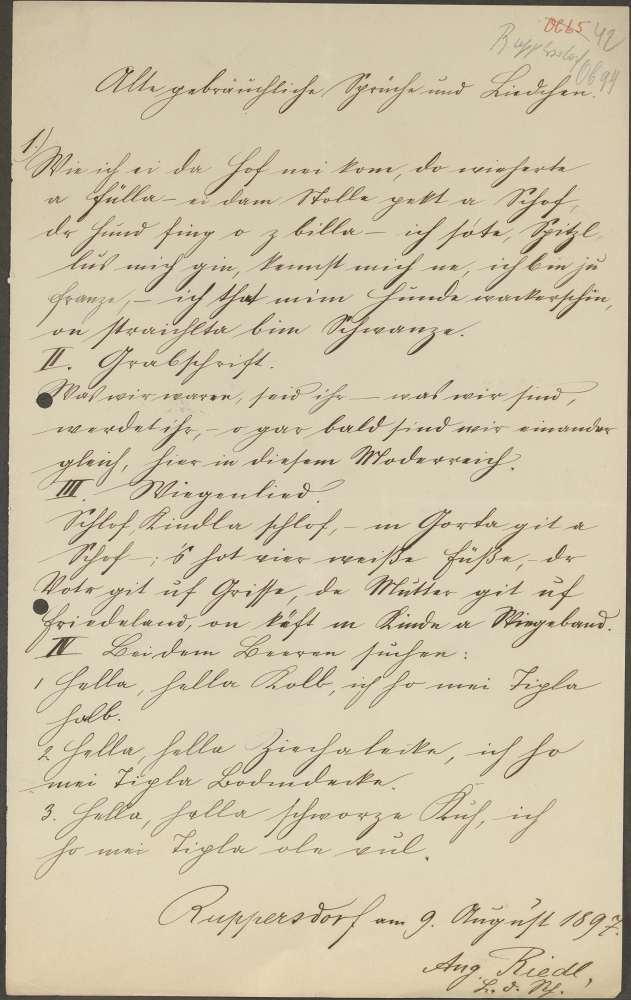 0665 42
Ruppersdorf
0694
Alte gebräuchliche Sprüche und Liedchen.
1.) Wie ich ei da Hof nei kom, do wieherte
a Fülla – ei dam Stolle pekt a Schof,
dr Hund fing o z billa – ich sote, Spitzl,
lus mich gin, kennst mich ne, ich bin ju
Franze, – ich that mem Hunde wackerschin,
on straichlta bim Schwanze.
II. Grabschrift.
Was wir waren, seid ihr – was wir sind,
werdet ihr, – o gar bald sind wir einander
gleich, hier in diesem Moderreich.
III. Wiegenlied.
Schlof, Kindla schlof, – m Gorta git a
Schof –; 's hot vier weiße Füße, – dr
Votr git uf Grisse, de Mutter git uf
Friedeland, on käft m Kinde a Wiegeband.
IV Bei dem Beeren suchen:
1 Hella, hella Kolb, ich ho mei Tipla
holb.
2 Hella, hella Ziechaleike, ich ho
mei Tipla Bodmdecke.
3. Hella, hella schworze Kuh, ich
ho mei Tipla ole vul.
Ruppersdorf am 9. August 1897.
Aug. Riedl,
L. d. Sch.